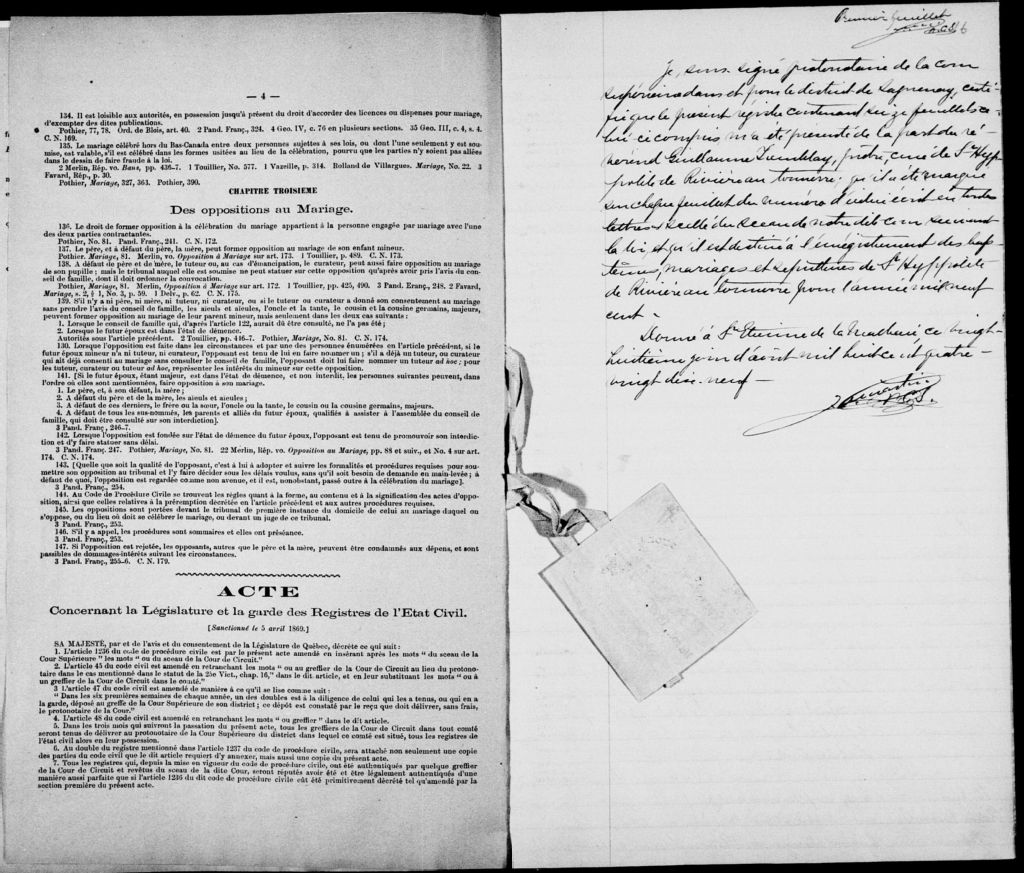 — 4 —
134. Il est loisible aux autorités, en possession jusqu'à présent du droit d'accorder des licences ou dispenses pour mariage,
d'exempter des dites publications.
Pothier, 77, 78. Ord. de Blois, art. 40. 2 Pand. Franç., 324. 4 Geo. IV, c. 76 en plusieurs sections. 35 Geo. III, c. 4, s. 4.
C. N. 169.
135. Le mariage célébré hors du Bas-Canada entre deux personnes sujettes à ses lois, ou dont l'une seulement y est sou-
mise, est valable, s'il est célébré dans les formes usitées au lieu de la célébration, pourvu que les parties n'y soient pas allées
dans le dessin de faire fraude à la loi.
2 Merlin, Rép. vo. Bans, pp. 436-7. 1 Touillier, No. 577. 1 Vazeille, p. 314. Rolland de Villargues. Mariage, No. 22. 3
Favard, Rép., p. 30.
Pothier, Mariage, 327, 363. Pothier, 390.
CHAPITRE TROISIEME
Des oppositions au Mariage.
136. Le droit de former opposition à la célébration du mariage appartient à la personne engagée par mariage avec l'une
des deux parties contractantes.
Pothier, No. 81. Pand. Franç., 241. C. N. 172.
137. Le père, et à défaut du père, la mère, peut former opposition au mariage de son enfant mineur.
Pothier, Mariage, 81. Merlin, vo. Opposition à Mariage sur art. 173. 1 Touillier, p. 489. C. N. 173.
138. A défaut de père et de mère, le tuteur ou, au cas d'émancipation, le curateur, peut aussi faire opposition au mariage
de son pupille ; mais le tribunal auquel elle est soumise ne peut statuer sur cette opposition qu'après avoir pris l'avis du con-
seil de famille, dont il doit ordonner la convocation.
Pothier, Mariage, 81. Merlin, Opposition à Mariage sur art. 172. 1 Touillier, pp. 425, 490. 3 Pand. Franç., 248. 2 Favard,
Mariage, s. 2, § 1, No. 3, p. 59. 1 Delv., p. 62. C. N. 175.
139. S'il n'y a ni père, ni mère, ni tuteur, ni curateur, ou si le tuteur ou curateur a donné son consentement au mariage
sans prendre l'avis du conseil de famille, les aïeuls et aïeules, l'oncle et la tante, le cousin et la cousine germains, majeurs,
peuvent former opposition au mariage de leur parent mineur, mais seulement dans les deux cas suivants :
1. Lorsque le conseil de famille qui, d'après l'article 122, aurait dû être consulté, ne l'a pas été ;
2. Lorsque le futur époux est dans l'état de démence.
Autorités sous l'article précédent. 2 Touillier, pp. 416-7. Pothier, Mariage, No. 81. C. N. 174.
130. Lorsque l'opposition est faite dans les circonstances et par une des personnes énumérées en l'article précédent, si le
futur époux mineur n'a ni tuteur, ni curateur, l'opposant est tenu de lui en faire nommer un ; s'il a déjà un tuteur, ou curateur
qui ait déjà consenti au mariage sans consulter le conseil de famille, l'opposant doit lui faire nommer un tuteur ad hoc ; pour
les tuteur, curateur ou tuteur ad hoc, représenter les intérêts du mineur sur cette opposition.
141. [Si le futur époux, étant majeur, est dans l'état de démence, et non interdit, les personnes suivantes peuvent, dans
l'ordre où elles sont mentionnées, faire opposition à son mariage.
1. Le père, et, à son défaut, la mère ;
2. A défaut du père et de la mère, les aïeuls et aïeules ;
3. A défaut de ces derniers, le frère ou la sœur, l'oncle ou la tante, le cousin ou la cousine germains, majeurs.
4. A défaut de tous les sus-nommés, les parents et alliés du futur époux, qualifiés à assister à l'assemblée du conseil de
famille, qui doit être consulté sur son interdiction].
3 Pand. Franç., 246-7.
142. Lorsque l'opposition est fondée sur l'état de démence du futur époux, l'opposant est tenu de promouvoir son interdic-
tion et d'y faire statuer sans délai.
3 Pand. Franç. 247. Pothier, Mariage, No. 81. 22 Merlin, Rép. vo. Opposition au Mariage, pp. 88 et suiv., et No. 4 sur art.
174. C. N. 174.
143. [Quelque que soit la qualité de l'opposant, c'est à lui à adopter et suivre les formalités et procédures requises pour sou-
mettre son opposition au tribunal et l'y faire décider sous les délais voulus, sans qu'il soit besoin de demande en main-levée ; à
défaut de quoi, l'opposition est regardée comme non avenue, et il est, nonobstant, passé outre à la célébration du mariage].
3 Pand. Franç., 254.
144. Au Code de Procédure Civile se trouvent les règles quant à la forme, au contenu et à la signification des actes d'oppo-
sition, ainsi que celles relatives à la préremption décrétée en l'article précédent et aux autres procédures requises.
145. Les oppositions sont portées devant le tribunal de première instance du domicile de celui au mariage duquel on
s'oppose, ou du lieu où doit se célébrer le mariage, ou devant un juge de ce tribunal.
3 Pand. Franç., 253.
146. S'il y a appel, les procédures sont sommaires et elles ont préséance.
3 Pand. Franç., 253.
147. Si l'opposition est rejetée, les opposants, autres que le père et la mère, peuvent être condamnés aux dépens, et sont
passibles de dommages-intérêts suivant les circonstances.
3 Pand. Franç., 255-6. C. N. 179.
ACTE
Concernant la Législature et la garde des Registres de l'Etat Civil.
[Sanctionué le 5 avril 1869.]
SA MAJESTÉ, par et de l'avis et du consentement de la Législature de Québec, décrète ce qui suit :
1. L'article 1236 du code de procédure civile est par le présent acte amendé en insérant après les mots " du sceau de la
Cour Supérieure " les mots " ou du sceau de la Cour de Circuit."
2. L'article 45 du code civil est amendé en retranchant les mots " ou au greffier de la Cour de Circuit au lieu du protono-
taire dans le cas mentionnée dans le statut de la 25e Vict., chap. 16," dans le dit article, et en leur substituant les mots " ou à
un greffier de la Cour de Circuit dans le comté."
3 L'article 47 du code civil est amendé de manière à ce qu'il se lise comme suit :
" Dans les six premières semaines de chaque année, un des doubles est à la diligence de celui qui les a tenus, ou qui en a
la garde, déposé au greffe de la Cour Supérieure de son district ; ce dépôt est constaté par le reçu que doit délivrer, sans frais,
le protonotaire de la Cour."
4. L'article 48 du code civil est amendé en retranchant les mots " ou greffier " dans le dit article.
5. Dans les trois mois qui suivront la passation du présent acte, tous les greffiers de la Cour de Circuit dans tout comté
seront tenus de délivrer au protonotaire de la Cour Supérieure du district dans lequel ce comté est situé, tous les registres de
l'état civil alors en leur possession.
6. Au double du registre mentionné dans l'article 1237 du code de procédure civile, sera attaché non seulement une copie
des parties du code civil que le dit article requiert d'y annexer, mais aussi une copie du présent acte.
7. Tous les registres qui, depuis la mise en vigueur du code de procédure civile, ont été authentiqués par quelque greffier
de la Cour de Circuit et revêtus du sceau de la dite Cour, seront réputés avoir été et être légalement authentiqués d'une
manière aussi parfaite que si l'article 1236 du dit code de procédure civile eût été primitivement décrété tel qu'amendé par la
section première du présent acte.
Premier feuillet
Je, sous signé protonotaire de la cour
supérieure dans et pour le district de Saguenay, certi-
fie que le présent régistre contenant seize feuillets ce-
lui-ci compris m'a été présenté de la part du ré-
vérend Guillaume Tremblay, prêtre, curé de St Hyp-
polite de Rivière au tonnerre ; qu'il a été marqué
sur chaque feuillet du numéro d'icelui écrit en toutes
lettres & scellé du sceau de notre dit cour suivant
la loi et qu'il est destiné à l'enrégistrement des bap-
têmes, mariages et sépultures de St Hyppolite
de Rivière au tonnerre pour l'année mil neuf
cent -
Donné à St Etienne de la Malbaie, ce vingt-
huitième jour d'août mil huit cent quatre-
vingt dix-neuf -